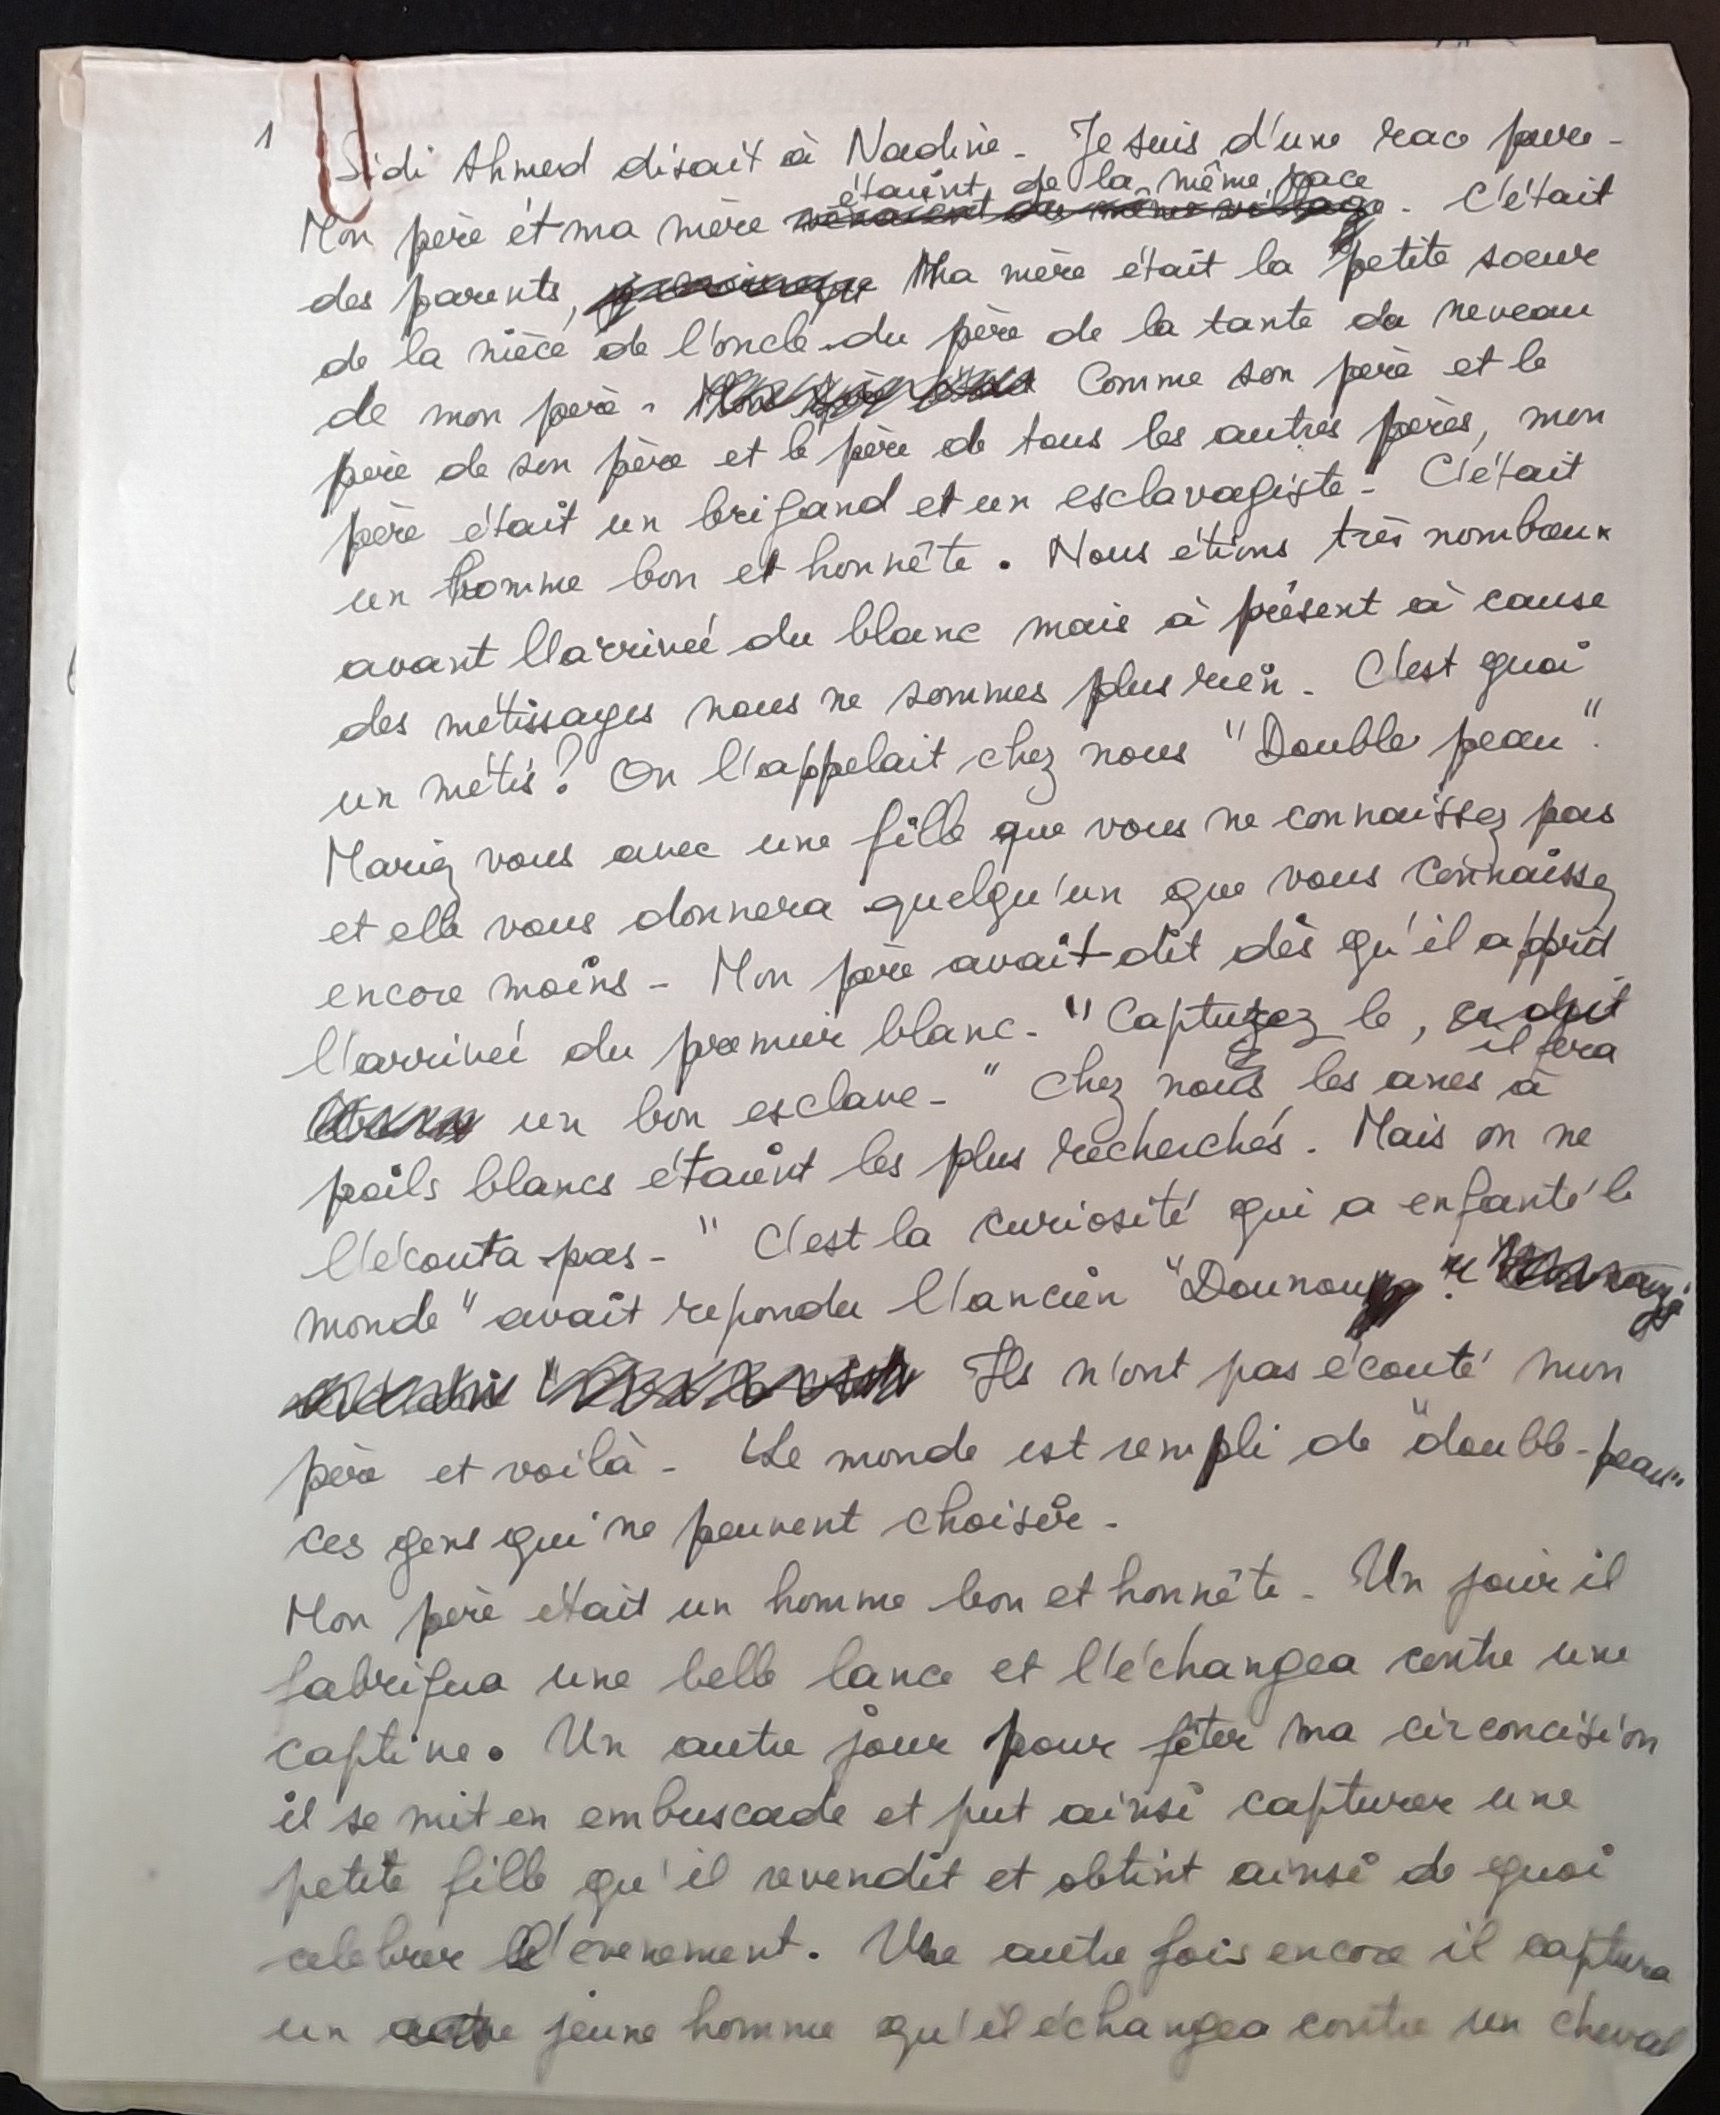 1 Sidi Ahmed disait à Nadine - Je suis d'une race pure -
étaient de la même race
Mon père et ma mère venaient du même village. C'était
des parents, Ma mère était la petite soeur
de la nièce de l'oncle du père de la tante du neveau
de mon père - Comme son père et le
père de son père et le père de tous les autres pères, mon
père était un brigand et un esclavagiste - C'était
un homme bon et honnête. Nous étions très nombreux
avant l'arrivée du blanc mais à présent à cause
des métissages nous ne sommes plus rien. C'est quoi
un métis? On l'appelait chez nous "Double peau".
Mariez vous avec une fille que vous ne connaissez pas
et elle vous donnera quelqu'un que vous connaissez
encore moins - Mon père avait dit dès qu'il apprit
l'arrivée du premier blanc - "Capturez le,
il fera
un bon esclave - " Chez nous les anes à
poils blancs étaient les plus recherchés. Mais on ne
l'écouta pas - "C'est la curiosité qui a enfanté le
monde" avait repondu l'ancien
Ils n'ont pas écouté mon
père et voilà - Le monde est rempli de "double-peau"
ces gens qui ne peuvent choisir -
Mon père était un homme bon et honnête - Un jour il
fabriqua une belle lance et l'échangea contre une
captive. Un autre jour pour fêter ma circoncision
il se mit en embuscade et put ainsi capturer une
petite fille qu'il revendit et obtint ainsi de quoi
celebrer l'évenement. Une autre fois encore il captura
un autre jeune homme qu'il échangea contre un cheval